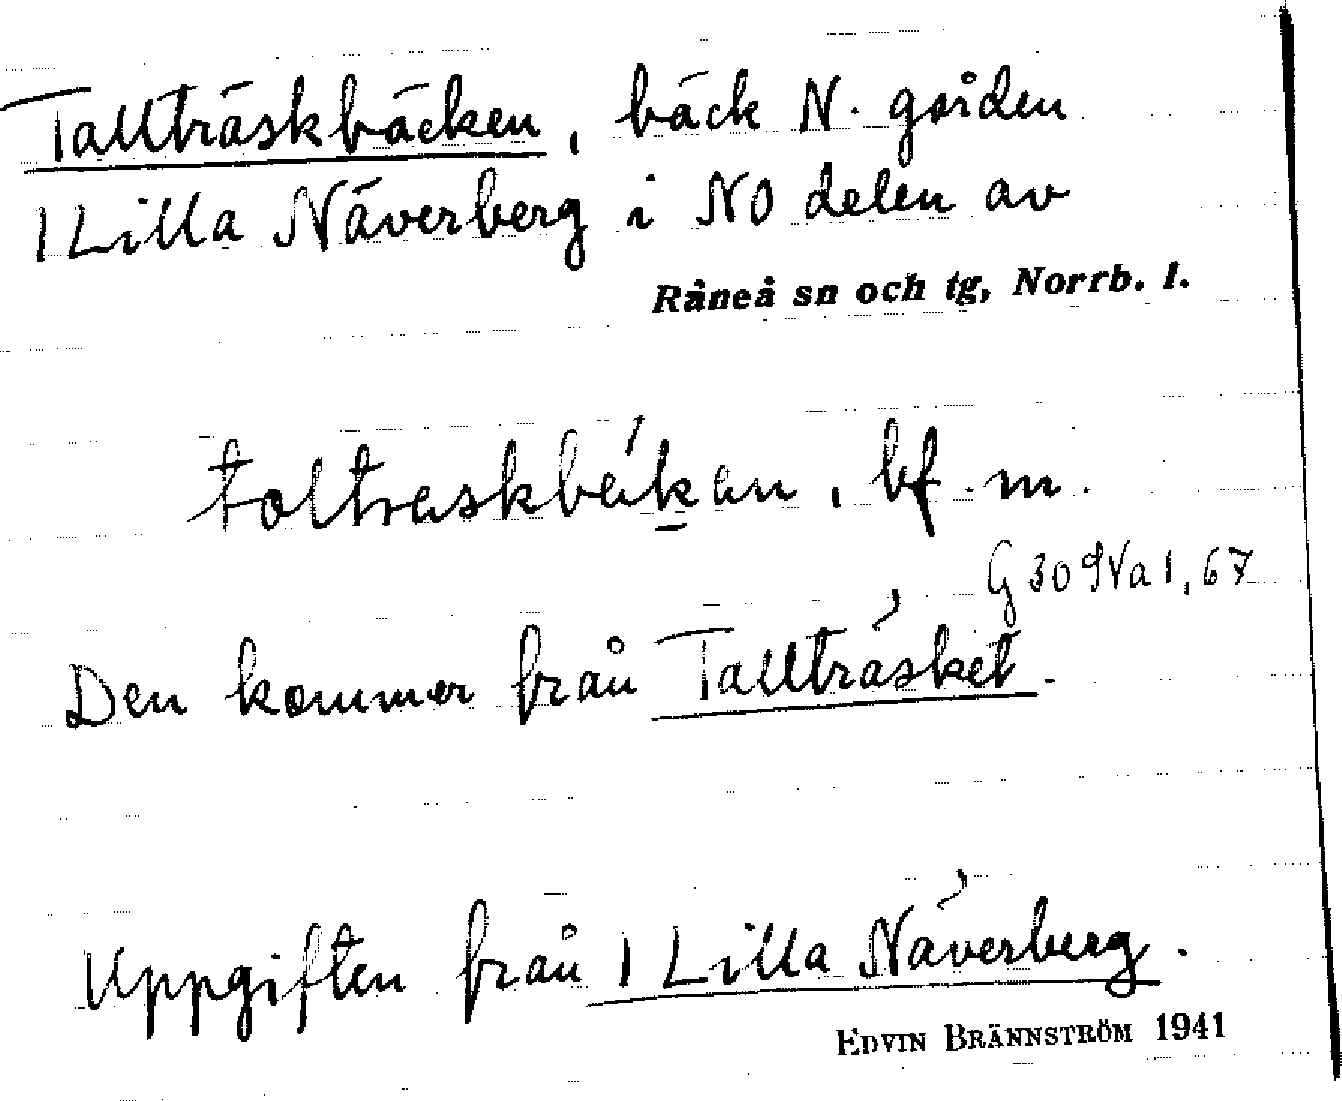 Tallträskbäcken, bäck N. gården
1 Lilla Näverberg i NO delen av
Råneå sn och tg, Norrb. l.
bf. m.
Den kommer från Tallträsket.
Uppgiften från 1 Lilla Näverberg.
EDVIN BRÄNNSTRÖM 1941